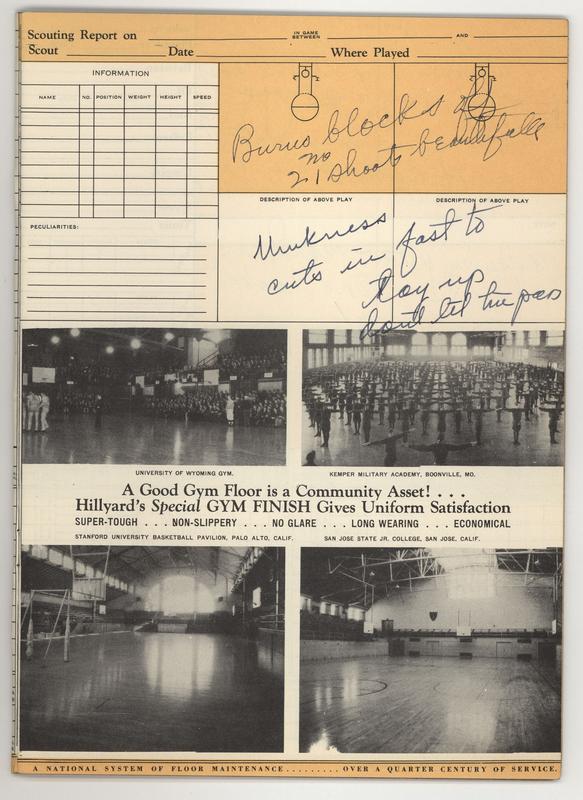 Scouting Report on IN GAME BETWEEN AND
Scout Date Where Played
INFORMATION
NAME NO. POSITION WEIGHT HEIGHT SPEED
Burns blocks
no
21 shoots beautifully
DESCRIPTION OF ABOVE PLAY DESCRIPTION OF ABOVE PLAY
PECULIARITIES:
cuts in fast to
lay up
don't let him pass
UNIVERSITY OF WYOMING GYM. KEMPER MILITARY ACADEMY, BOONVILLE, MO.
A Good Gym Floor is a Community Asset! . . .
Hillyard's Special GYM FINISH Gives Uniform Satisfaction
SUPER-TOUGH . . . NON-SLIPPERY . . . NO GLARE . . . LONG WEARING . . . ECONOMICAL
STANFORD UNIVERSITY BASKETBALL PAVILION, PALO ALTO, CALIF. SAN JOSE STATE JR. COLLEGE, SAN JOSE, CALIF.
A NATIONAL SYSTEM OF FLOOR MAINTENANCE......... OVER A QUARTER CENTURY OF SERVICE.